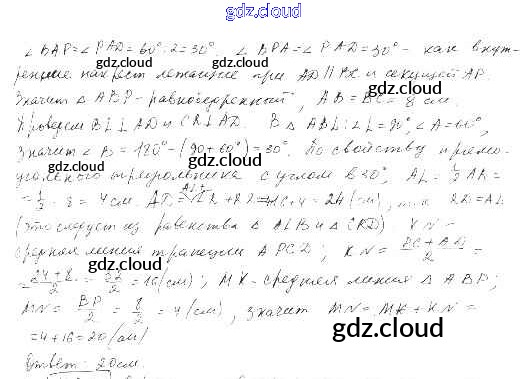 gdz.cloud
∠BAP=∠PAD=60°:2=30°. ∠BPA=∠PAD=30° - как внут-
ренние накрест лежащие при AD∥BC и секущей AP.
Значит △ABP - равнобедренный, AB=BC=8 см.
Проведем BL⊥AD и CR⊥AD. В △ABL: ∠L=90°, ∠A=60°,
gdz.cloud
значит ∠B=180°-(90+60°)=30°. По свойству прямо-
угольного треугольника с углом в 30°, AL=½AB=
=½·8=4см AD=AL+LR+RD= =24(см), т.к RD=AL
gdz.cloud
(это следует из равенства △ALB и △CRD). KN-
средняя линия трапеции APCD; KN=
gdz.cloud
gdz.cloud
=16(см); MK-средняя линия △ABP;
MN=BP/2=8/2=4(см), значит MN=MK+KN=
=4+16=20(см)
gdz.cloud
Ответ: 20см.